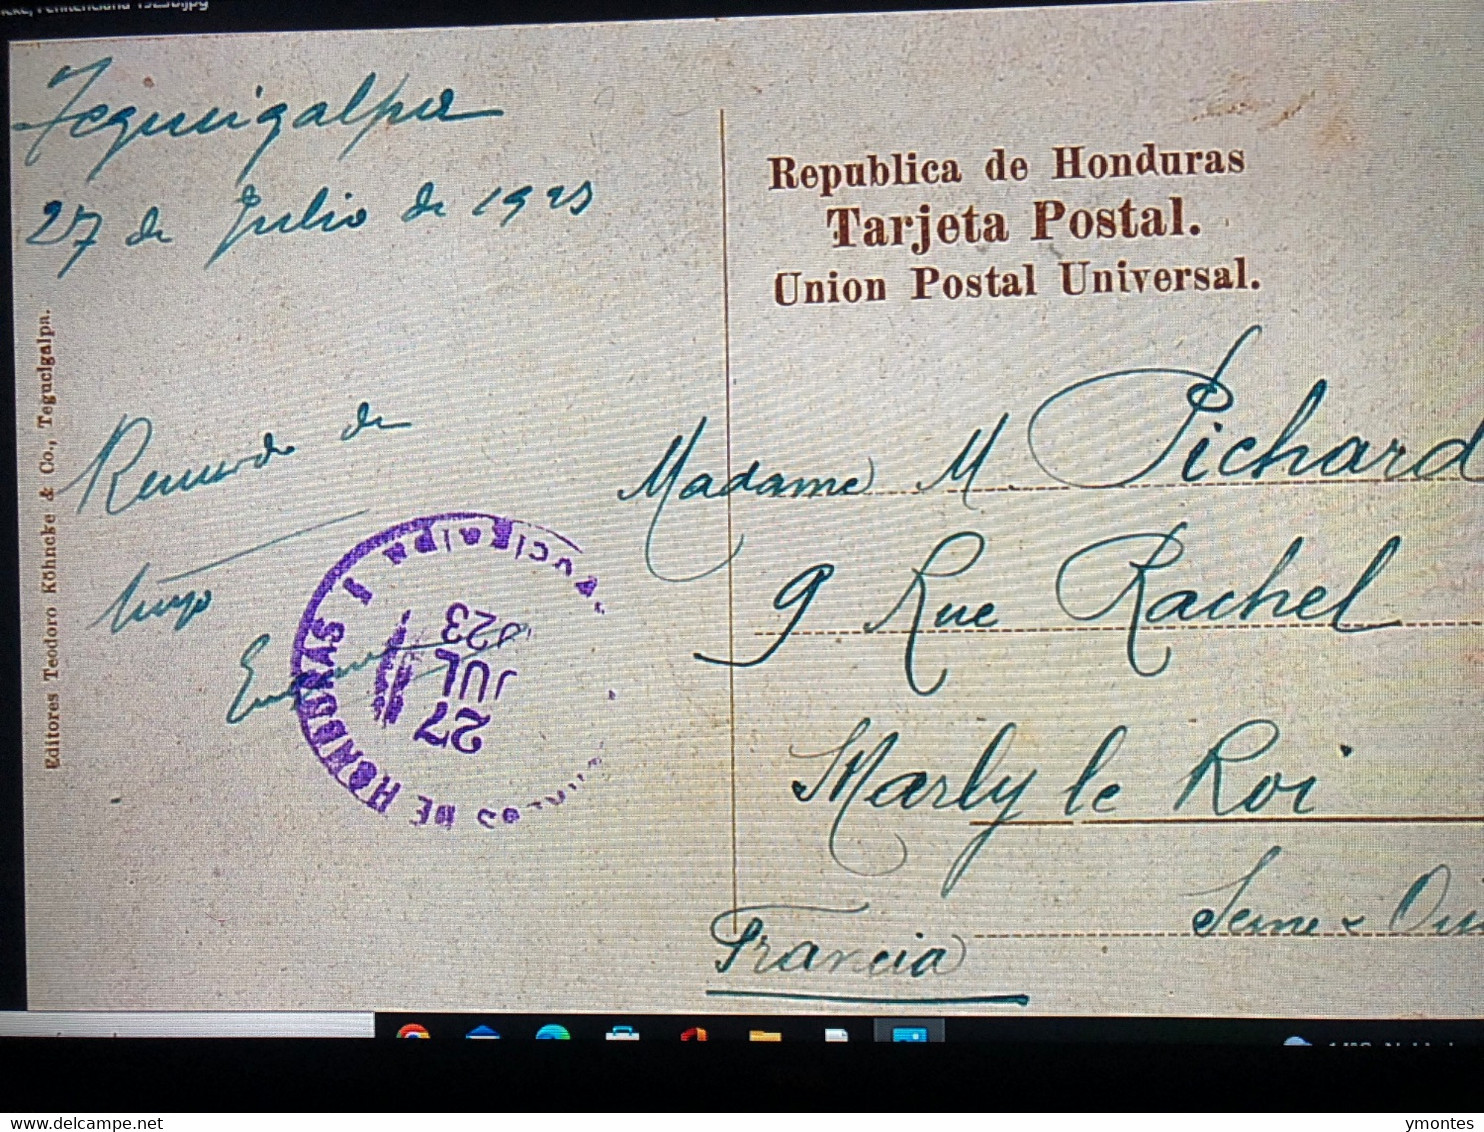 Penitenciaria 1923b.jpg
Tegucigalpa
27 de Julio de 1923
Republica de Honduras
Tarjeta Postal.
Union Postal Universal.
Editores Teodoro Köhncke & Co., Tegucigalpa.
Recuerdo de
Madame M. Pichard
9 Rue Rachel
Marly le Roi
Seine & Oi
Francia
DE HONDURAS
27
JUL
923
ymontes